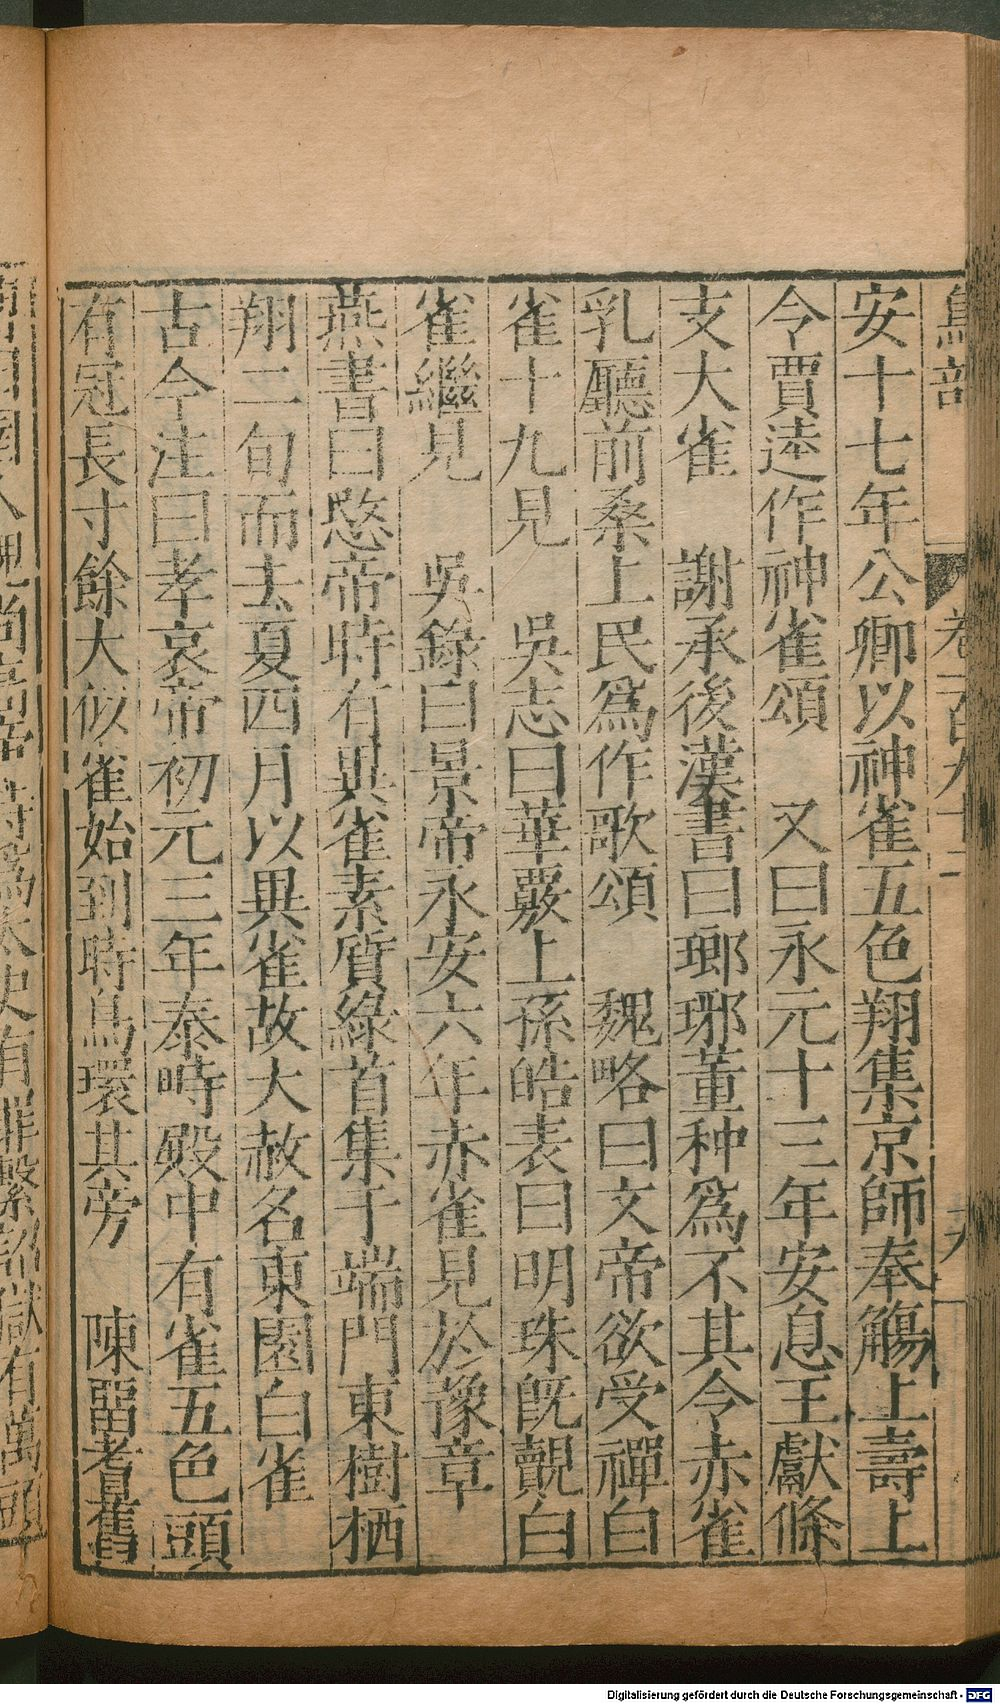 鳥部 卷
安十七年公卿以神雀五色翔集京師奉觴上壽上
令賈逵作神雀頌 又曰永元十三年安息王獻條
支大雀 謝承後漢書曰瑯琊董种爲不其令赤雀
乳廳前桑上民爲作歌頌 魏略曰文帝欲受禪白
雀十九見 吳志曰華覈上孫皓表曰明珠旣覿白
雀繼見 吳錄曰景帝永安六年赤雀見於豫章
燕書曰愍帝時有異雀素質綠首集于端門東樹栖
翔二旬而去夏四月以異雀故大赦名東園白雀
古今注曰孝哀帝初元三年泰時殿中有雀五色頭
有冠長寸餘大似雀始到時鳥環其旁 陳畱耆舊
尚書帝時爲太史有罪繫詔獄有萬頭
Digitalisierung gefördert durch die Deutsche Forschungsgemeinschaft - DFG